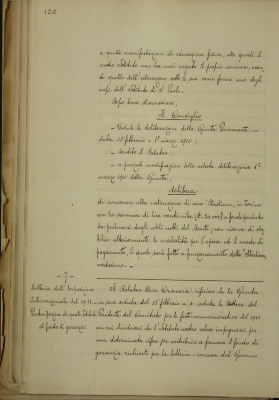 120
a queste manifestazioni di educazione fisica, alle quali il
nostro Istituto non ha mai negato il proprio concorso,
quello dell'educazione sotto le sue varie forme uno degli
scopi dell'Istituto di S. Paolo.
Dopo breve discussione,
Il Consiglio
- Vedute le deliberazioni della Giunta Permanente in
data 15 febbraio e 1° marzo 1910;
- sentito il Relatore
- a parziale modificazione della citata deliberazione 1°
marzo 1910 della Giunta;
delibera
di concorrere alla costruzione di uno "Stadium" in Torino
con la somma di lire ventimila (£ 20.000) a fondo perduto
da prelevarsi dagli utili netti del Monte, con riserva di
stabilire ulteriormente le modalità per l'epoca ed il modo di
pagamento, il quale sarà fatto a funzionamento dello Stadium
medesimo. -
- 7 -
Lotteria dell'Esposizione
Internazionale del 1911. -
Partecipazione di questo Istituto
al fondo di garanzia
Il Relatore riferisce che la Giunta
in sua seduta del 15 febbraio u. s. veduta la lettera del
Presidente del Comitato per le feste commemorative del 1911
con cui chiedeva che l'Istituto nostro voglia impegnarsi per
una determinata cifra per contribuire a formare il fondo di
garanzia richiesto per la lotteria concessa dal Governo